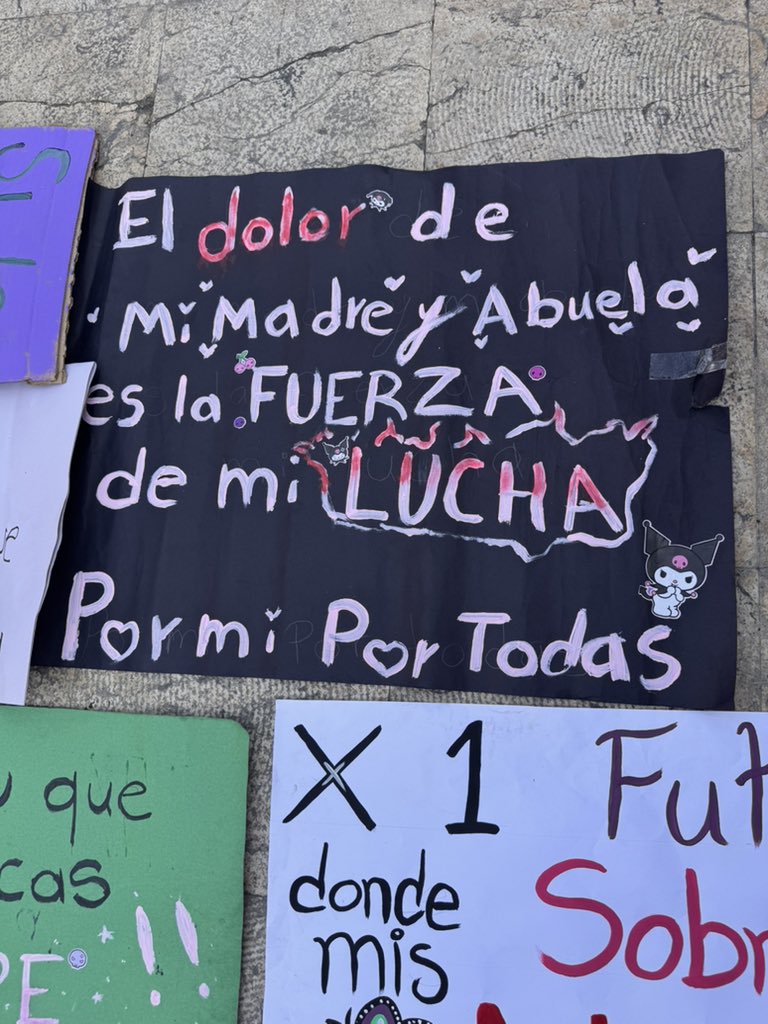 El dolor de
Mi Madre y Abuela
es la FUERZA
de mi LUCHA
Por mi Por Todas
que
X 1
donde
mis